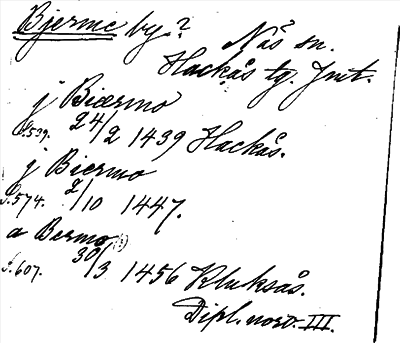 Bjerme by?
Näs sn.
Hackås tg. Jmt.
j Biærmo
S.539. 24/2 1439 Hackås.
j Biermo
S.574. 2/10 1447.
a Bermo (?)
S.607. 30/3 1456 Kluksås.
Dipl. norv. III.